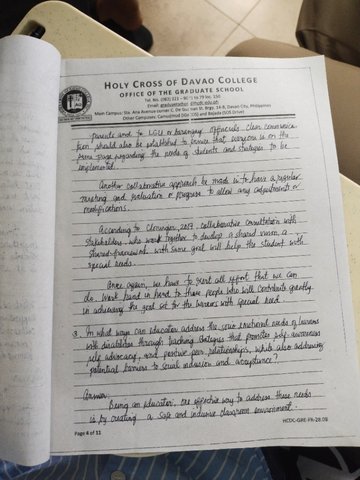 HOLY CROSS OF DAVAO COLLEGE
OFFICE OF THE GRADUATE SCHOOL
Tel. No. (082) 221 – 9071 to 79 loc. 130
Email: graduateschool @hcdc.edu.ph
Main Campus: Sta. Ana Avenue corner C. De Guzman St. Brgy. 14-B, Davao City, Philippines
Other Campuses: Camudmud (IGACOS) and Bajada (SOS Drive)
parents and to LGU or barangay officials. Clear communica-
tion should also be established to ensure that everyone is on the
same page regarding the needs of students and strategies to be
implemented.
Another collaborative approach be made is to have a regular
meeting and evaluation of progress to allow any adjustments or
modifications.
According to 2017, collaborative consultation with
stakeholders who work together to develop a shared vision &
shared-framework with same goal will help the student with
special needs.
Once again, we have to exert all effort that we can
do. Work hand in hand to those people who will contribute greatly
in achieving the goal set for the learners with special need.
3. In what ways can educators address the socio-emotional needs of learners
with disabilities through teaching strategies that promote self-awareness
self advocacy, and positive peer relationships, while also addressing
potential barriers to social inclusion and acceptance?
Answer:
Being an educator, one effective way to address these needs
is by creating a safe and inclusive classroom environment.
Page 6 of 11
HCDC-GRE-FR-28.08